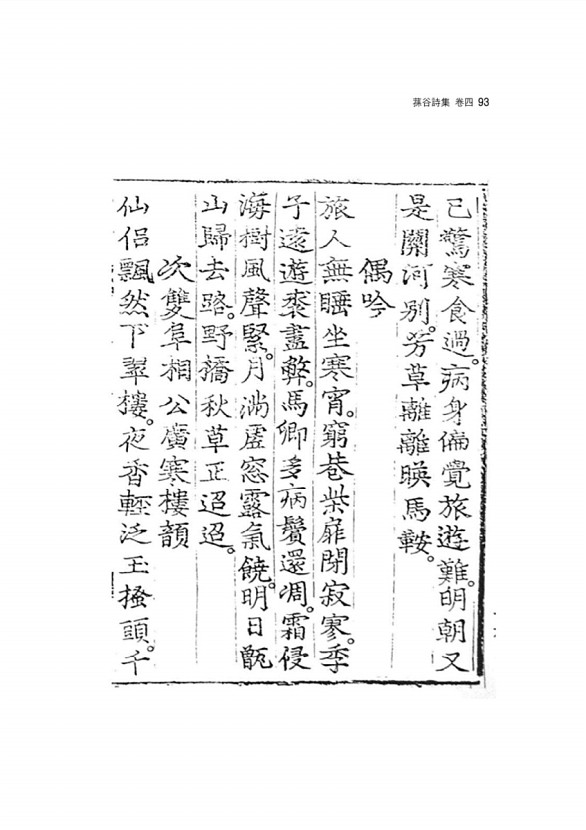 蓀谷詩集 卷四 93
已驚寒食過。病身偏覺旅遊難。明朝又
是關河別。芳草離離暎馬鞍。
偶吟
旅人無睡坐寒宵。窮巷柴扉閉寂寥。季
子遠遊裘盡弊。馬卿多病鬢還凋。霜侵
海樹風聲緊。月滿虛窓露氣饒。明日甑
山歸去路。野橋秋草正迢迢。
次雙阜相公廣寒樓韻
仙侶飄然下翠樓。夜香輕泛玉搔頭。千